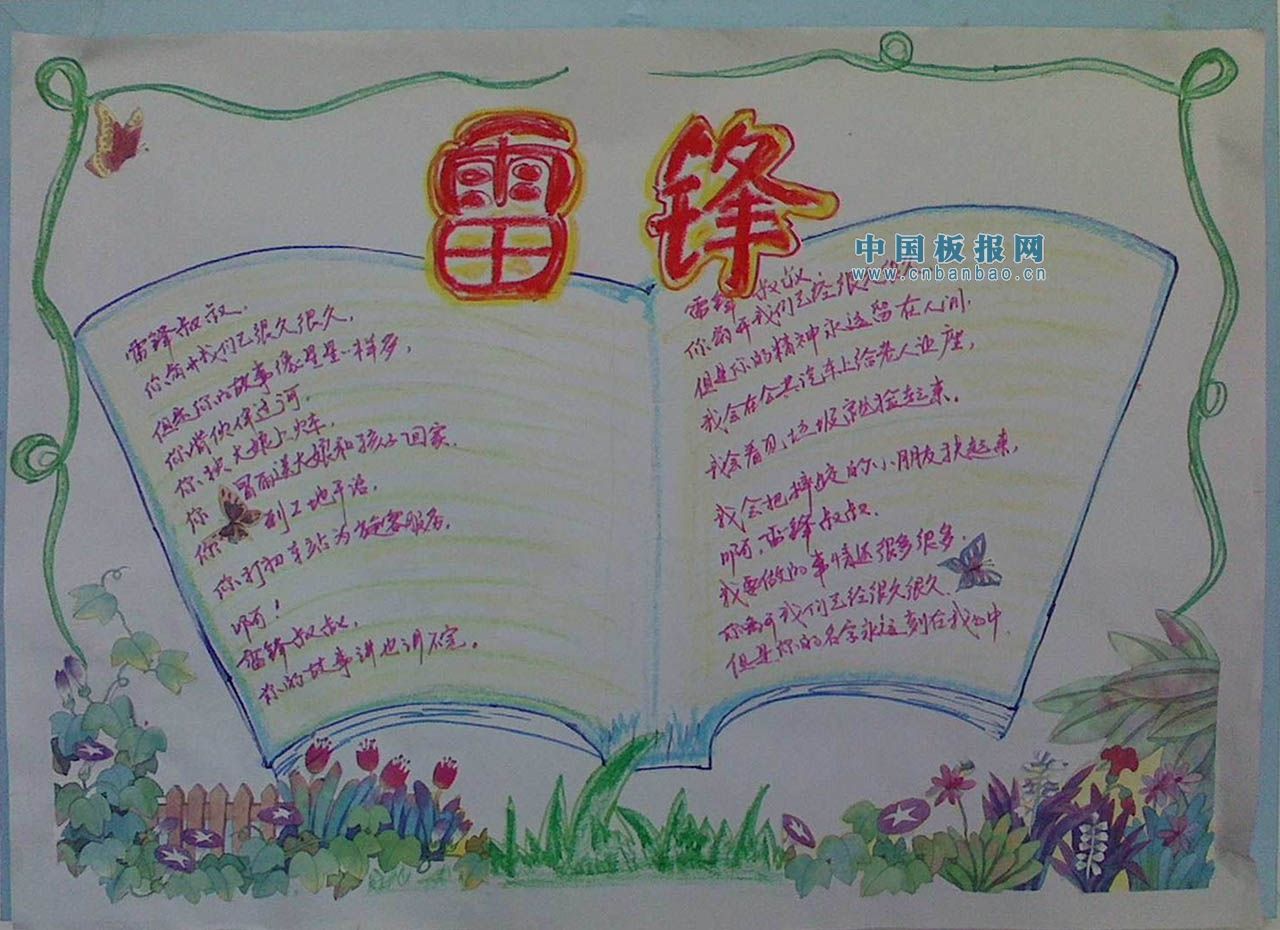 雷锋
中国板报网
www.cnbanbao.cn
雷锋叔叔，
你离开我们已很久很久，
但是你的故事像星星一样多，
你背侦保过河，
你扶大娘上火车，
你冒雨送大娘和孩子回家，
你到工地干活，
你到初车站为旅客服务，
啊！
雷锋叔叔，
你的故事讲也讲不完。
雷锋叔叔
你离开我们已经很久
但是你的精神永远留在人间，
我会在公共汽车上给老人让座，
我会看见垃圾就捡起来，
我会把摔跤的小朋友扶起来，
啊，雷锋叔叔，
我要做的事情还很多很多，
你离开我们已经很久很久，
但是你的名字永远刻在我心中，